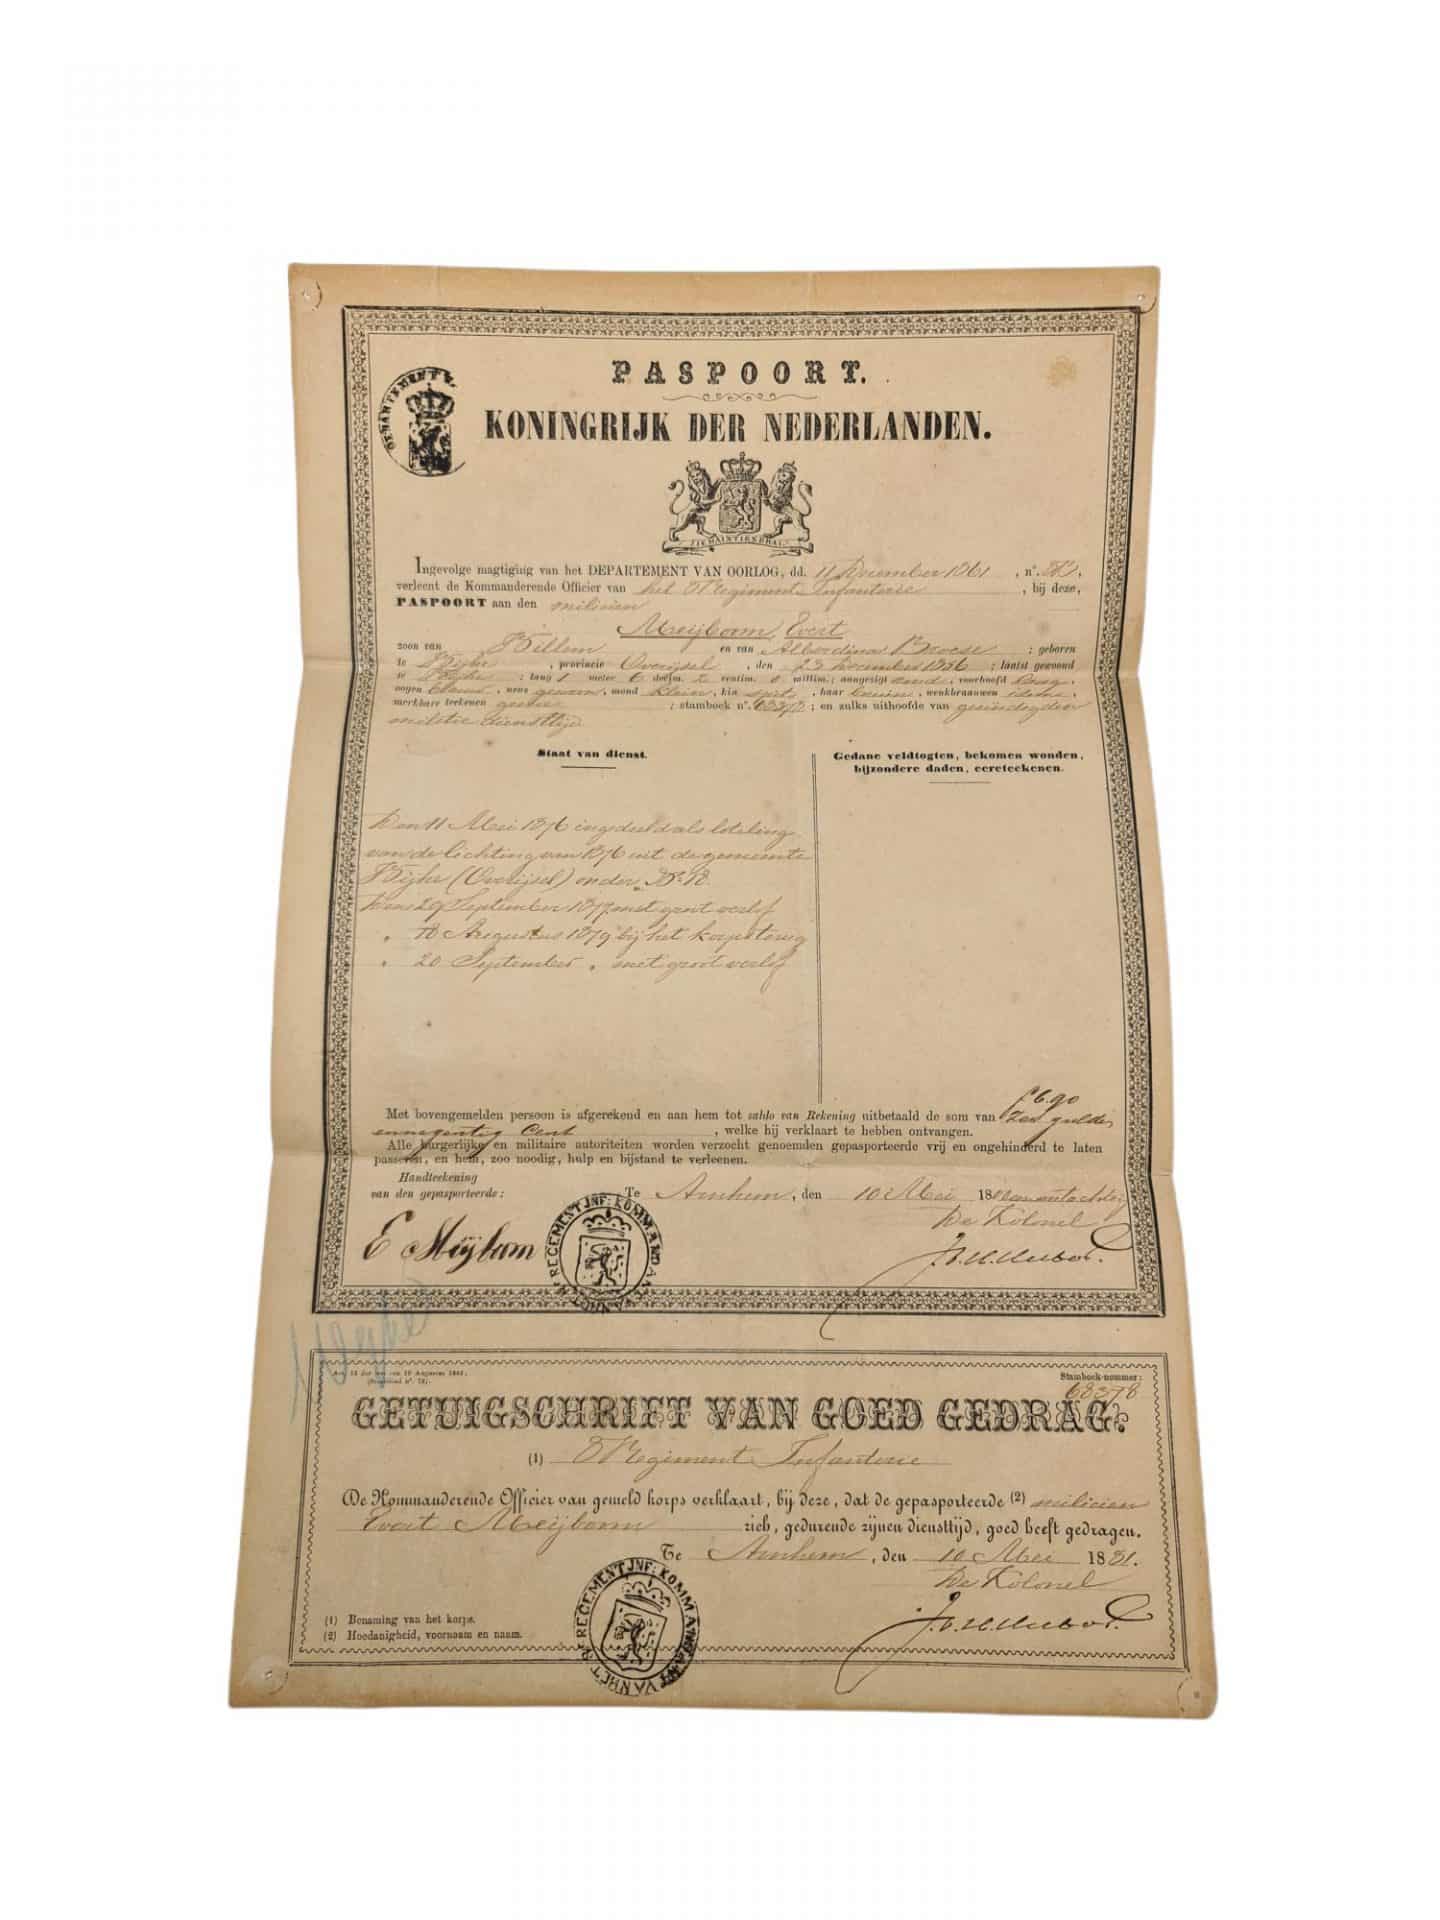 PASPOORT.
KONINGRIJK DER NEDERLANDEN.
JE MAINTIENDRAI
Ingevolge magtiging van het DEPARTEMENT VAN OORLOG, dd. 11 December 1861, n°.
verleent de Kommanderende Officier van het Regiment Infanterie, bij deze,
PASPOORT aan den milicien
Meijboom, Evert
zoon van Willem en van Alberdina Broese; geboren
te Wijhe, provincie Overijsel, den 23 December 1856; laatst gewoond
te Wijhe; lang 1 meter 6 deeim. centim. millim.; aangezigt rond, voorhoofd hoog,
oogen blauw, neus gewoon, mond klein, kin spits, haar bruin, wenkbraauwen idem,
merkbare teekenen geene; stamboek n°. 68378; en zulks uithoofde van geëindigden
militie diensttijd
Staat van dienst.
Gedane veldtogten, bekomen wonden,
bijzondere daden, eereteekenen.
Den 11 Mei 1876 ingedeeld als loteling
van de lichting van 1876 uit de gemeente
Wijhe (Overijsel) onder N°. 18.
Den 29 September 1877 met groot verlof
" 18 Augustus 1879 bij het korps terug
" 20 September " met groot verlof
f 6.90
Met bovengemelden persoon is afgerekend en aan hem tot saldo van Rekening uitbetaald de som van Zes gulden
en negentig Cent, welke hij verklaart te hebben ontvangen.
Alle burgerlijke en militaire autoriteiten worden verzocht genoemden gepasporteerde vrij en ongehinderd te laten
passeren, en hem, zoo noodig, hulp en bijstand te verleenen.
Handteekening
van den gepasporteerde:
Te Arnhem, den 10 Mei 18 een en tachtig
De Kolonel
E Meijbom
REGEMENT INF: KOMMANDANT VAN HET
Wijhe
Art. 12 der wet van 19 Augustus 1861;
(Staatsblad n°. 72).
Stamboek-nommer:
68378
GETUIGSCHRIFT VAN GOED GEDRAG.
(1) Regiment Infanterie
De Kommanderende Officier van gemeld korps verklaart, bij deze, dat de gepasporteerde (2) milicien
Evert Meijboom zich, gedurende zijnen diensttijd, goed heeft gedragen.
Te Arnhem, den 10 Mei 1881.
De Kolonel
(1) Benaming van het korps.
(2) Hoedanigheid, voornaam en naam.
REGEMENT INF: KOMMANDANT VAN HET